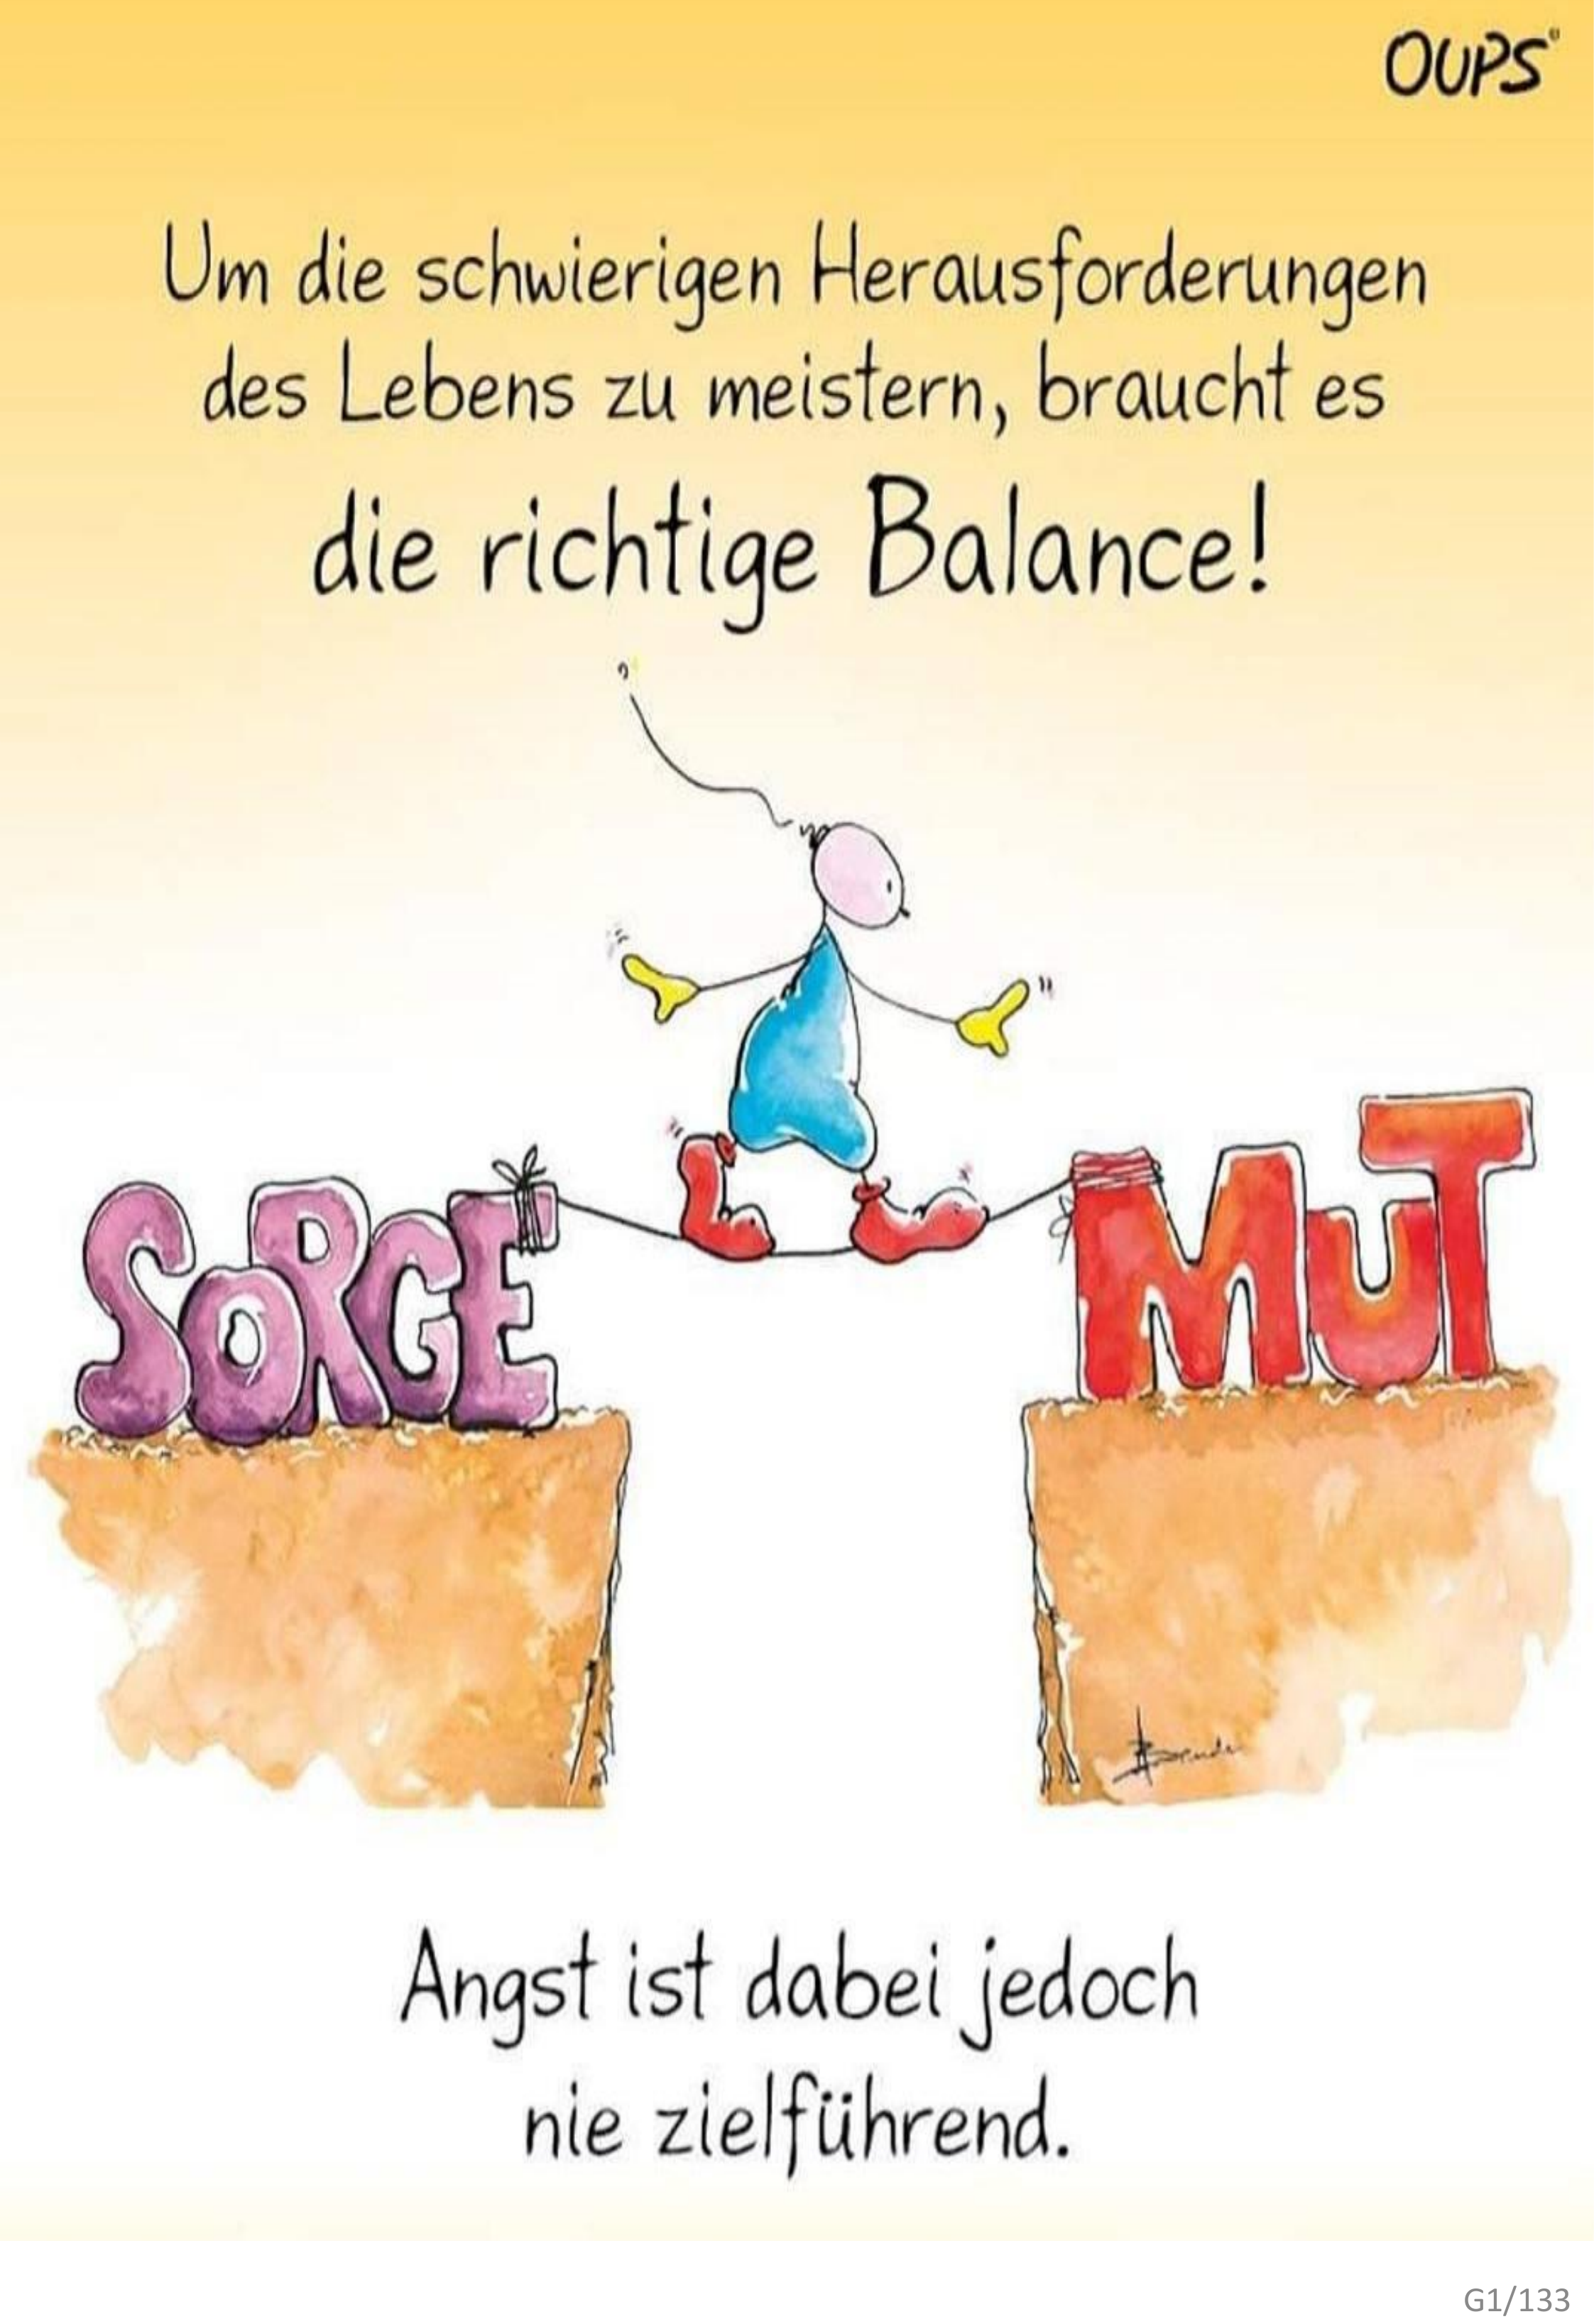 OUPS®
Um die schwierigen Herausforderungen
des Lebens zu meistern, braucht es
die richtige Balance!
SORGE
MUT
Angst ist dabei jedoch
nie zielführend.
G1/133